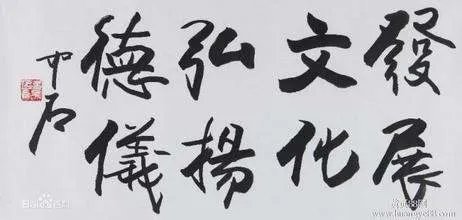 發展
文化
弘揚
德儀
如石
Baidu百科